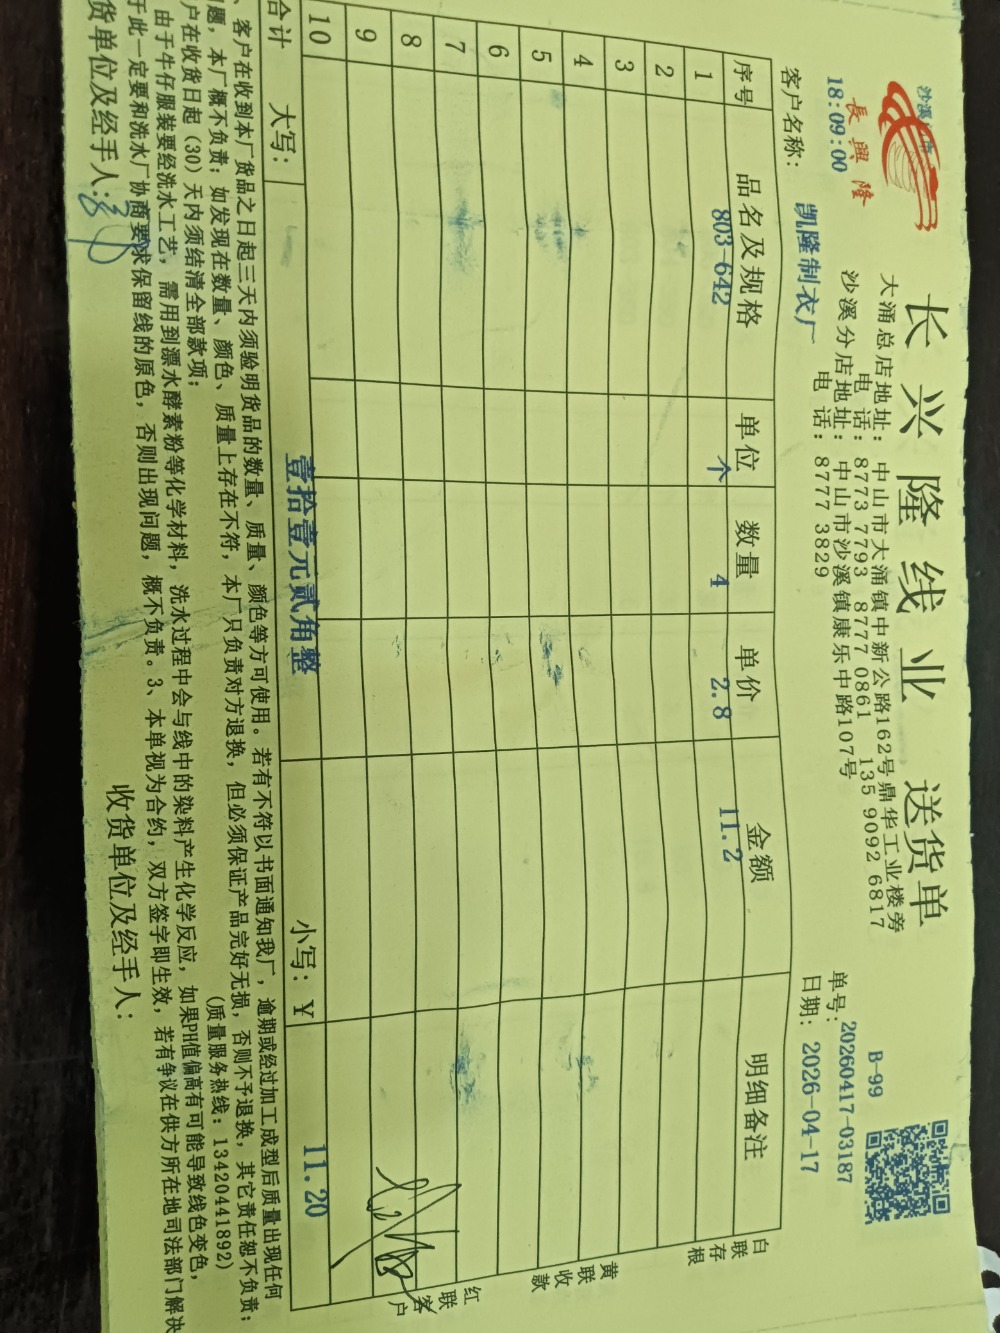 长兴隆线业 送货单
長興隆
18:09:00
大涌总店地址：中山市大涌镇中新公路162号鼎华工业楼旁
电 话：8773 7793 8777 0861 135 9092 6817
沙溪分店地址：中山市沙溪镇康乐中路107号
电 话：8777 3829
B-99
单号：20260417-03187
日期：2026-04-17
客户名称：凯隆制衣厂
序号 品名及规格 单位 数量 单价 金额 明细备注
1 803-642 个 4 2.8 11.2
2
3
4
5
6
7
8
9
10
合计 大写： 壹拾壹元贰角整 小写：￥ 11.20
白联存根
黄联收款
红联客户
、客户在收到本厂货品之日起三天内须验明货品的数量、质量、颜色等方可使用。若有不符以书面通知我厂，逾期或经过加工成型后质量出现任何
题，本厂概不负责；如发现在数量、颜色、质量上存在不符，本厂只负责对方退换，但必须保证产品完好无损，否则不予退换，其它责任恕不负责；
户在收货日起（30）天内须结清全部款项；
(质量服务热线：13420441892)
由于牛仔服装要经洗水工艺，需用到漂水酵素粉等化学材料，洗水过程中会与线中的染料产生化学反应，如果PH值偏高有可能导致线色变色，
于此一定要和洗水厂协商要求保留线的原色，否则出现问题，概不负责。3、本单视为合约，双方签字即生效，若有争议在供方所在地司法部门解决
货单位及经手人：
收货单位及经手人：